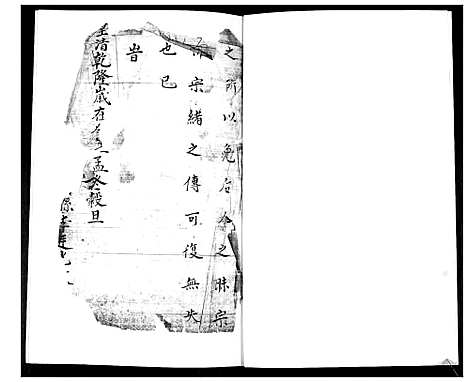 之所以免后人之昧宗
宗緒之傳可復無失
也已
旹
皇清乾隆歲在孟冬穀旦